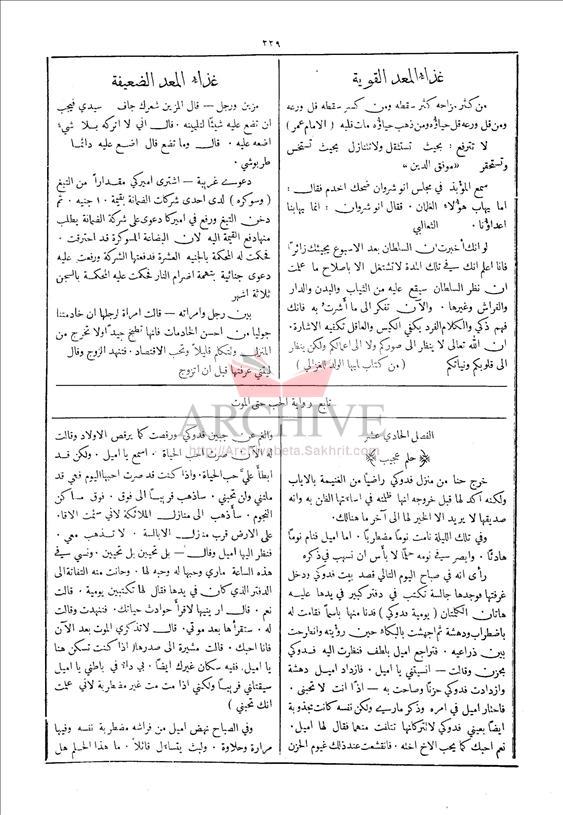 ٢٢٩
غذاء المعد القوية
من كثر مزاحه كثر سقطه ومن كثر سقطه قل ورعه
ومن قل ورعه قل حياؤه ومن ذهب حياؤه مات قلبه ( الامام عمر )
لا تترفع : بحيث تستثقل ولا تتنازل بحيث تستخس
وتستحقر « موفق الدين »
سمع المؤبذ في مجلس انوشروان ضحك الخدم فقال :
اما يهاب هؤلاء الغلمان . فقال انوشروان : انما يهابنا
اعداؤنا . الثعالبي
لو انك أُخبرت ان السلطان بعد الاسبوع يجيئك زائرًا
فانا اعلم انك في تلك المدة لا تشتغل الا باصلاح ما علمت
ان نظر السلطان سيقع عليه من الثياب والبدن والدار
والفراش وغيرها . والآن تفكر الى ما اشرت به فانك
فهم ذكي والكلام الفرد يكفي الكيس والعاقل تكفيه الاشارة .
ان الله تعالى لا ينظر الى صوركم ولا الى اعمالكم ولكن ينظر
الى قلوبكم ونياتكم ( من كتاب ايها الولد للغزالي )
غذاء المعد الضعيفة
مزين ورجل — قال المزين شعرك جاف سيدي فيجب
ان تضع عليه شيئًا لتليينه . قال اني لا اتركه بلا شيء
اضعه عليه . قال وما تضع قال اضع عليه دائمًا
طربوشي .
دعوى غريبة — اشترى اميركي مقدارًا من التبغ
( وسوكره ) لدى احدى شركات الضمانة بقيمة ١٠ جنيه . ثم
دخن التبغ ورفع في اميركا دعوى على شركة الضمانة يطلب
منها دفع القيمة اليه لان البضاعة المسوكرة قد احترقت .
فحكمت له المحكة بالجنيه العشرة فدفعتها الشركة ورفعت عليه
دعوى جنائية بتهمة اضرام النار فحكمت عليه المحكمة بالسجن
ثلاثة اشهر
بين رجل وامرأته — قالت امرأة لرجلها ان خادمتنا
جوليا من احسن الخادمات فانها تطبخ جيدًا ولا تخرج من
المنزل وتتكلم قليلاً وتحب الاقتصاد . فتنهد الزوج وقال
ليتني عرفتها قبل ان اتزوج
تابع رواية الحب حتى الموت
ARCHIVE
http://Archivebeta.Sakhrit.com
الفصل الحادي عشر
﴿ حلم عجيب ﴾
خرج حنا من منزل فدوكي راضيًا من الغنيمة بالاياب
ولكنه أكد لها قبل خروجه انها ظلمته في اساءتها الظن به وانه
صديقها لا يريد الا الخير لها الى آخر ما هنالك.
وفي تلك الليلة نامت نومًا مضطربًا . اما اميل فنام نومًا
هادئًا . وابصر في نومه حلمًا لا بأس ان نسهب في ذكره
رأى انه في صباح اليوم التالي قصد بيت فدوكي ودخل
غرفتها فوجدها جالسة تكتب في دفتر كبير في يدها عليه
هاتان الكلمتان ( يومية فدوكي ) فدنا منها باسمًا فقامت له
باضطراب ودهشة ثم اجهشت بالبكاء حين رؤيته وانطرحت
بين ذراعيه . فتراجع اميل بلطف فنظرت اليه فدوكي
بحزن وقالت — انسيتني يا اميل . فازداد اميل دهشة
وازدادت فدوكي حزنًا وصاحت به — اذًا انت لا تحبني .
فاحتار اميل في امره وذكر ماري ولكن نفسه كانت مجذوبة
ايضًا بعيني فدوكي لا تتركانها تتفلت منهما فقال لها اميل .
نعم احبك كما يحب الاخ اخته . فانقشعت عند ذلك غيوم الحزن
والغم عن جبين فدوكي ورقصت كما يرقص الاولاد وقالت
له الآن صرت احب الحياة . اسمع يا اميل . ولكن قد
ابطأ عليَّ حب الحياة . واذا كنت قد صرت احبها اليوم فهي قد
ملتني ولن تحبني . سأذهب قريبًا الى فوق . فوق مساكن
النجوم . سأذهب الى منازل الملائكة لاني سئمت الاقامة
على الارض قرب منازل الابالسة . لا تذهب معي .
فنظر اليها اميل وقال — بل تحبين بل تحبين . ونسي في
هذه الساعة ماري وحبها له وحبه لها . وحانت منه التفاتة الى
الدفتر الذي كان في يدها فقال لها تكتبين يومية . قالت
نعم . قال ارينيها لاقرأ حوادث حياتك . فتنهدت وقالت
له . ستقرأها بعد موتي . قال لا تذكري الموت بعد الآن
فانا احبك . قالت مشيرة الى صدرها اذا كنت تسكن هنا
يا اميل ففيه سكان غيرك ايضًا . في داء في باطني يا اميل
سيقتلني قريبًا ولكني اذا مت مت غير مضطربة لاني علمت
انك تحبني )
وفي الصباح نهض اميل من فراشه مضطربة نفسه وفيها
مرارة وحلاوة . ولبث يتساءل قائلاً . ما هذا الحلم هل